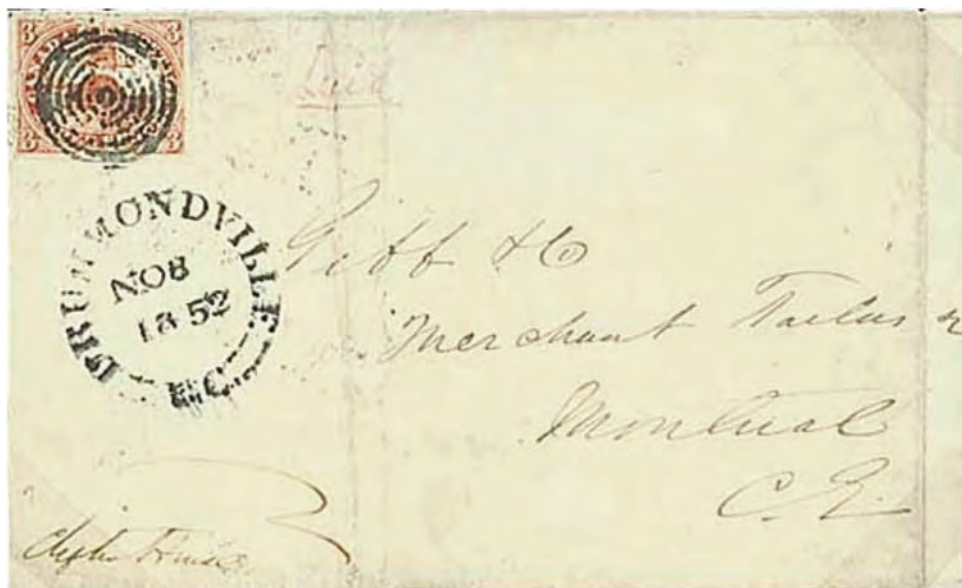 3 3
3 3
DRUMMONDVILLE
NO 8
1852
Gibb & Co
Merchant Tailors
Montreal
C.E.